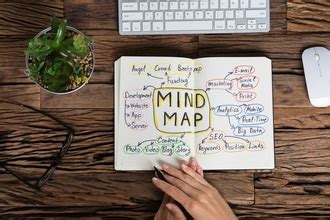 Angel Crowd Bootstrap
Funding
Development
Website
App
Server
MIND
MAP
Content
Photo Video Blog Story
E-mail
Marketing
Social
Media
Print
Analytics
Mobile
Real-Time
Big Data
SEO
Keywords Position Links